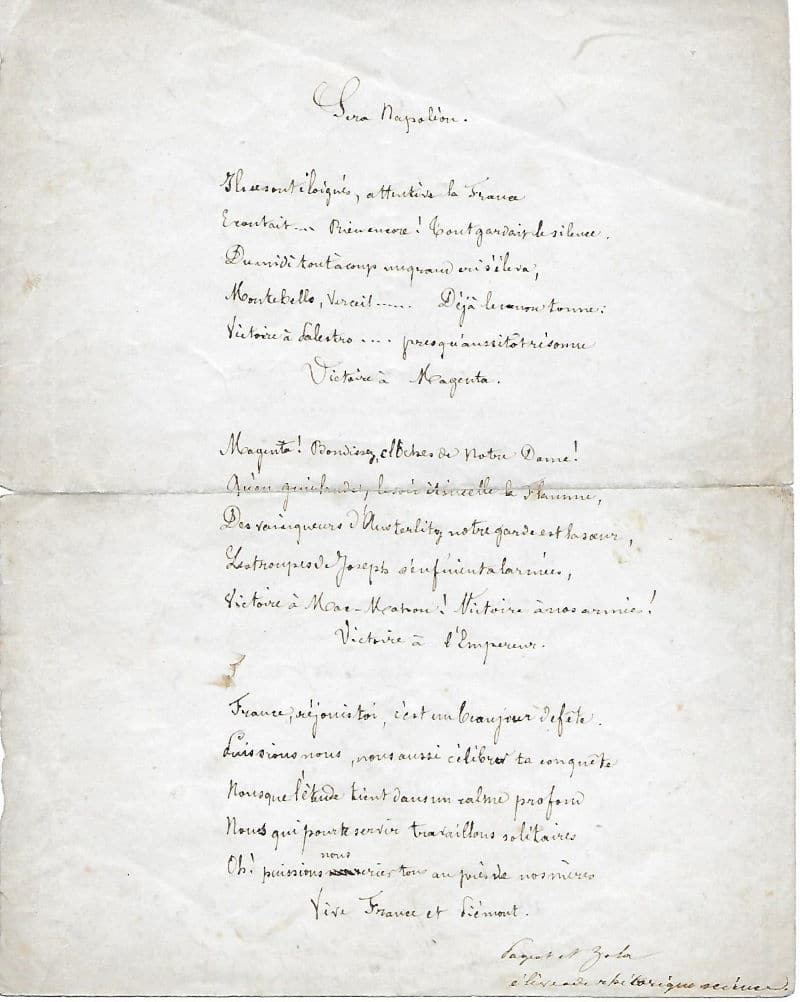 Sera Napoléon.
Ils se sont éloignés, attentive la France
Ecoutait.... Rien encore ! Tout gardait le silence.
Du midi tout à coup un grand cri s'éleva,
Montebello, Verceil...... Déjà le canon tonne :
Victoire à Palestro .... presqu'aussitôt résonne
Victoire à Magenta.
Magenta ! Bondissez, cloches de Notre Dame !
Qu'en guirlande, le soir étincelle la flamme,
Des vainqueurs d'Austerlitz notre garde est la sœur,
Les troupes de Joseph s'enfuient alarmées,
Victoire à Mac-Mahon ! Victoire à nos armées !
Victoire à l'Empereur.
France, réjouis toi, c'est un beau jour de fête.
Puissions nous, nous aussi célébrer ta conquête
Nous que l'étude tient dans un calme profond
Nous qui pour te servir travaillons solitaires
Oh ! puissions nous crier tous au près de nos mères
Vive France et Piémont.
Pagest et Zola
élèves de rhétorique science.